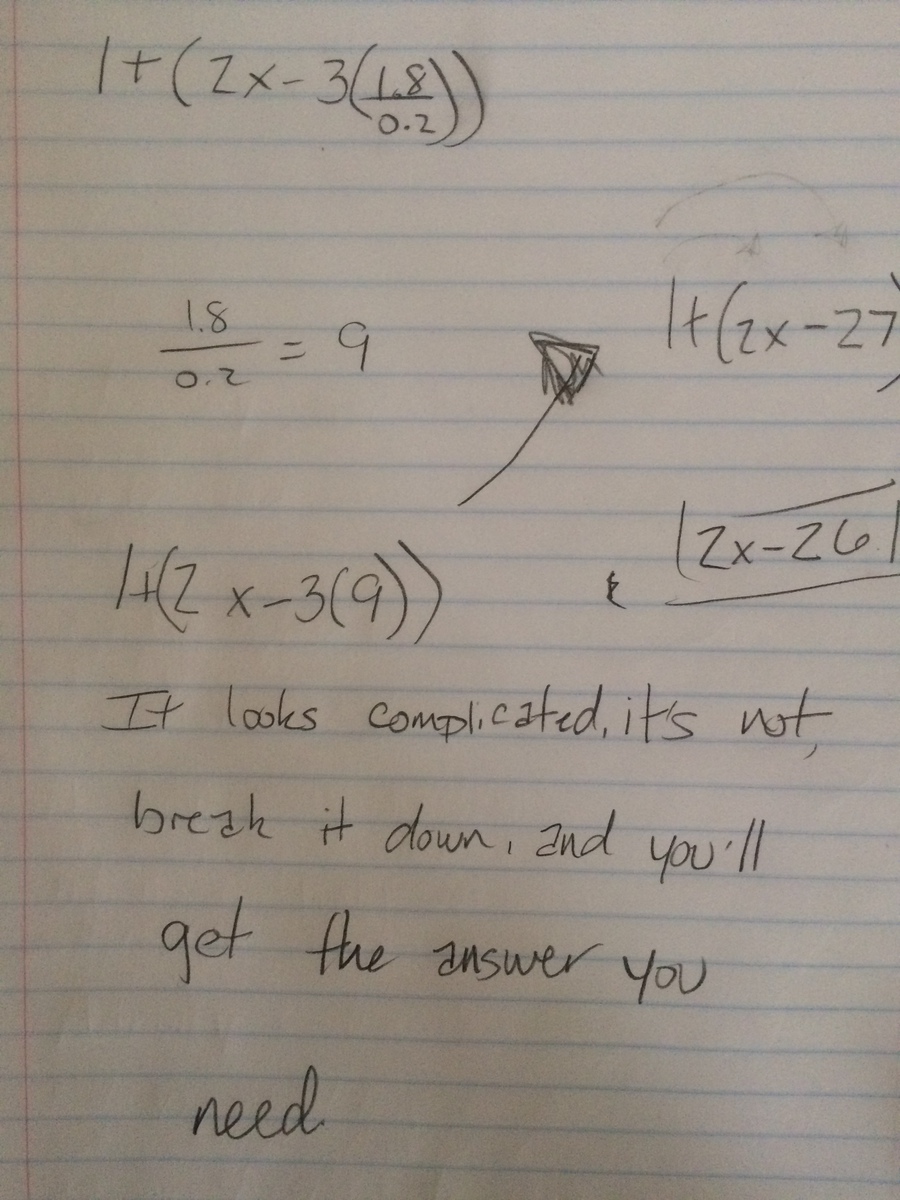 1+(2x-3(1.8/0.2))
1.8/0.2 = 9
1+(2x-27)
1+(2x-3(9))
2x-26
It looks complicated, it's not,
break it down, and you'll
get the answer you
need.